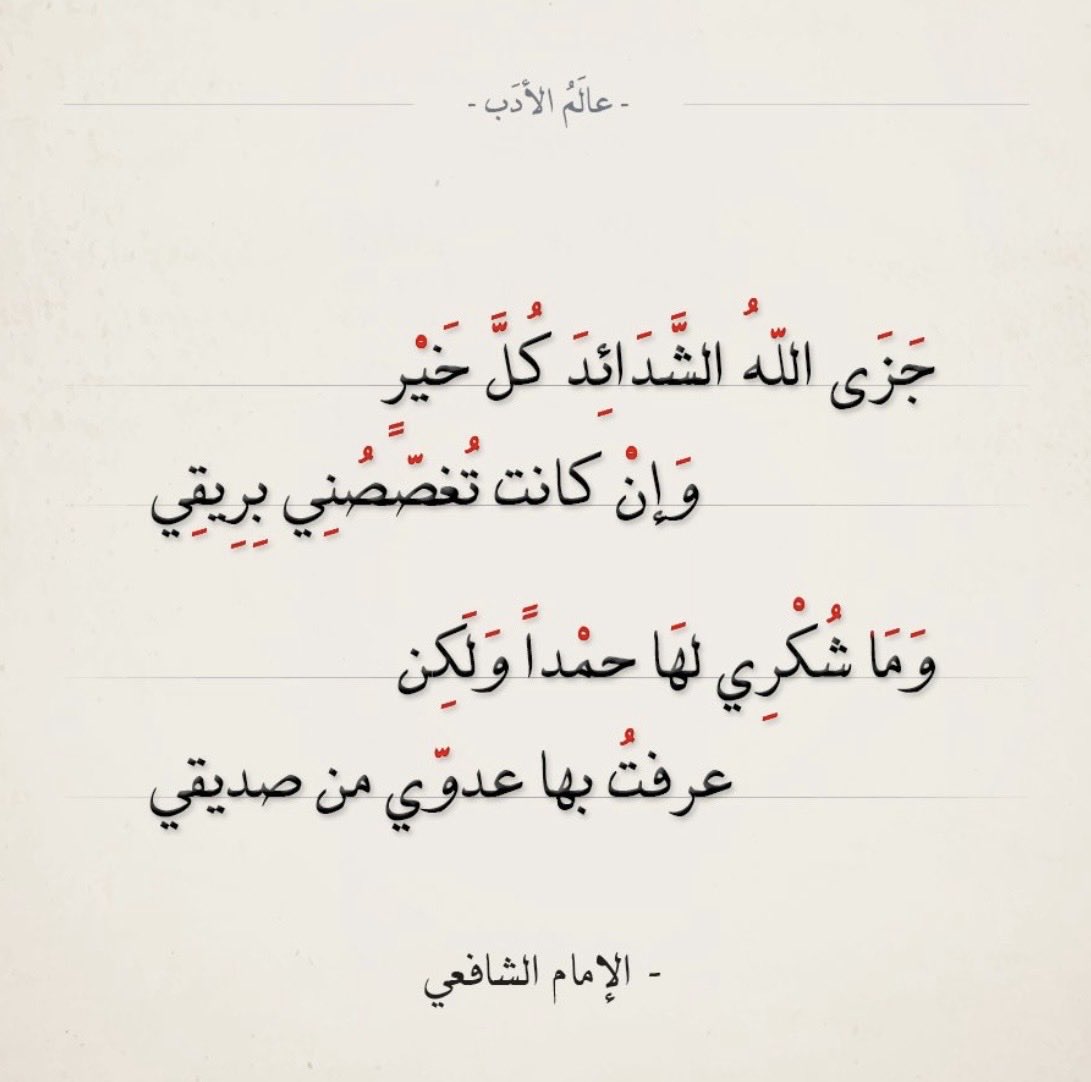 - عالَمُ الأدَب -
جَزَى اللّهُ الشَّدَائِدَ كُلَّ خَيْرٍ
وَإنْ كانت تُغصّصُنِي بِرِيقِي
وَمَا شُكْرِي لهَا حمْداً وَلَكِن
عرفتُ بها عدوّي من صديقي
- الإمام الشافعي